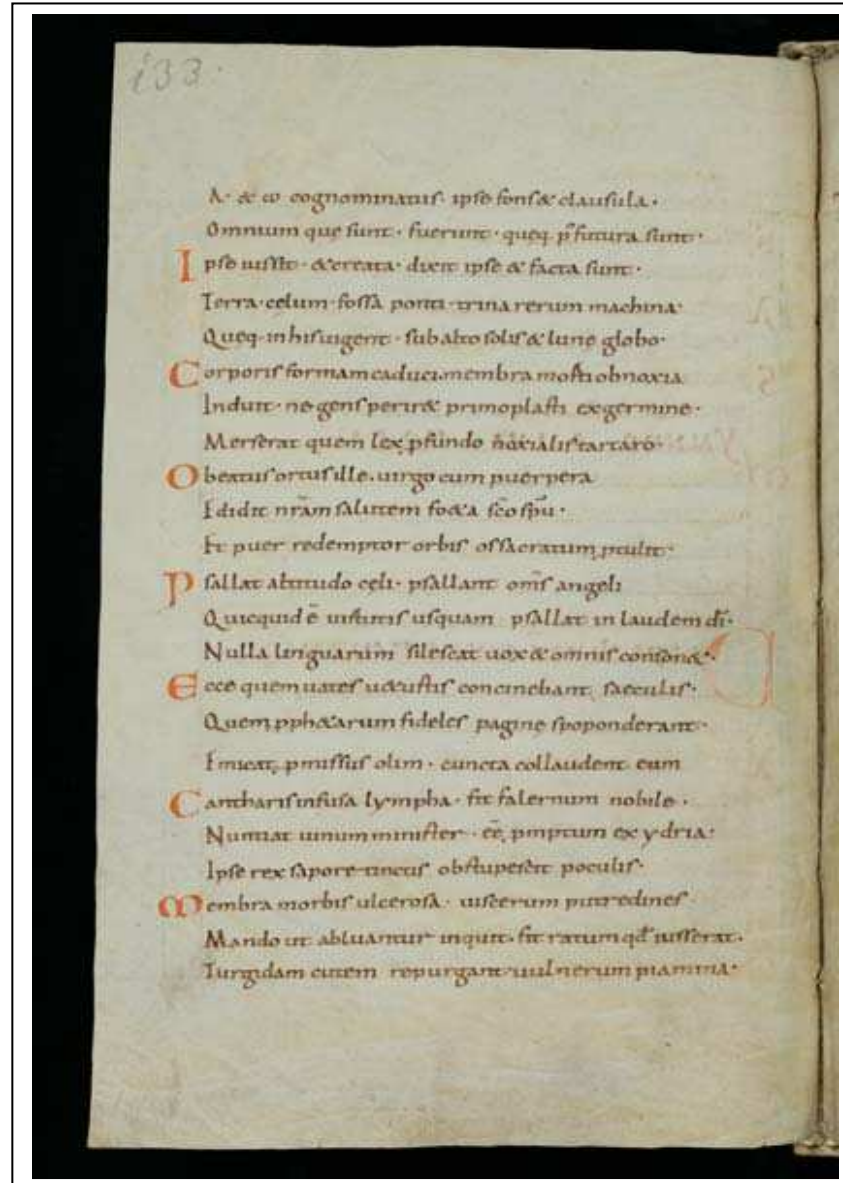 i33.
A· & ω cognominatus· ipse fons & clausula·
Omnium que sunt· fuerunt· queq; p̄ futura sunt·
Ipse iussit· & creata· dixit ipse & facta sunt·
Terra· celum· fossa ponti· trina rerum machina·
Queq· in his uigent· sub alto solis & lune globo·
Corporis formam caduci· membra morti obnoxia
Induit· ne gens perir& primoplasti ex germine·
Merserat quem lex pfundo noxialis tartaro·
O beatus ortus ille· uirgo cum puerpera
Edidit nr̄am salutem foeta sc̄o sp̄u·
Et puer redemptor orbis os sacratum ptulit·
Psallat altitudo celi· psallant om̄s angeli
Quicquid ē uirtutis usquam psallat in laudem dī·
Nulla linguarum silescat uox & omnis conson&·
Ecce quem uates u&ustis concinebant saeculis·
Quem pph&arum fideles pagine spoponderant·
Emicat pmissus olim· cuncta collaudent eum
Cantharis infusa lympha· fit falernum nobile·
Nuntiat uinum minister· eē pmptum ex ydria·
Ipse rex sapore tinctis obstupescit poculis·
Membra morbis ulcerosa· uiscerum putredines
Mando ut abluantur inquit· fit ratum qđ iusserat·
Turgidam cutem repurgant uulnerum piamina·